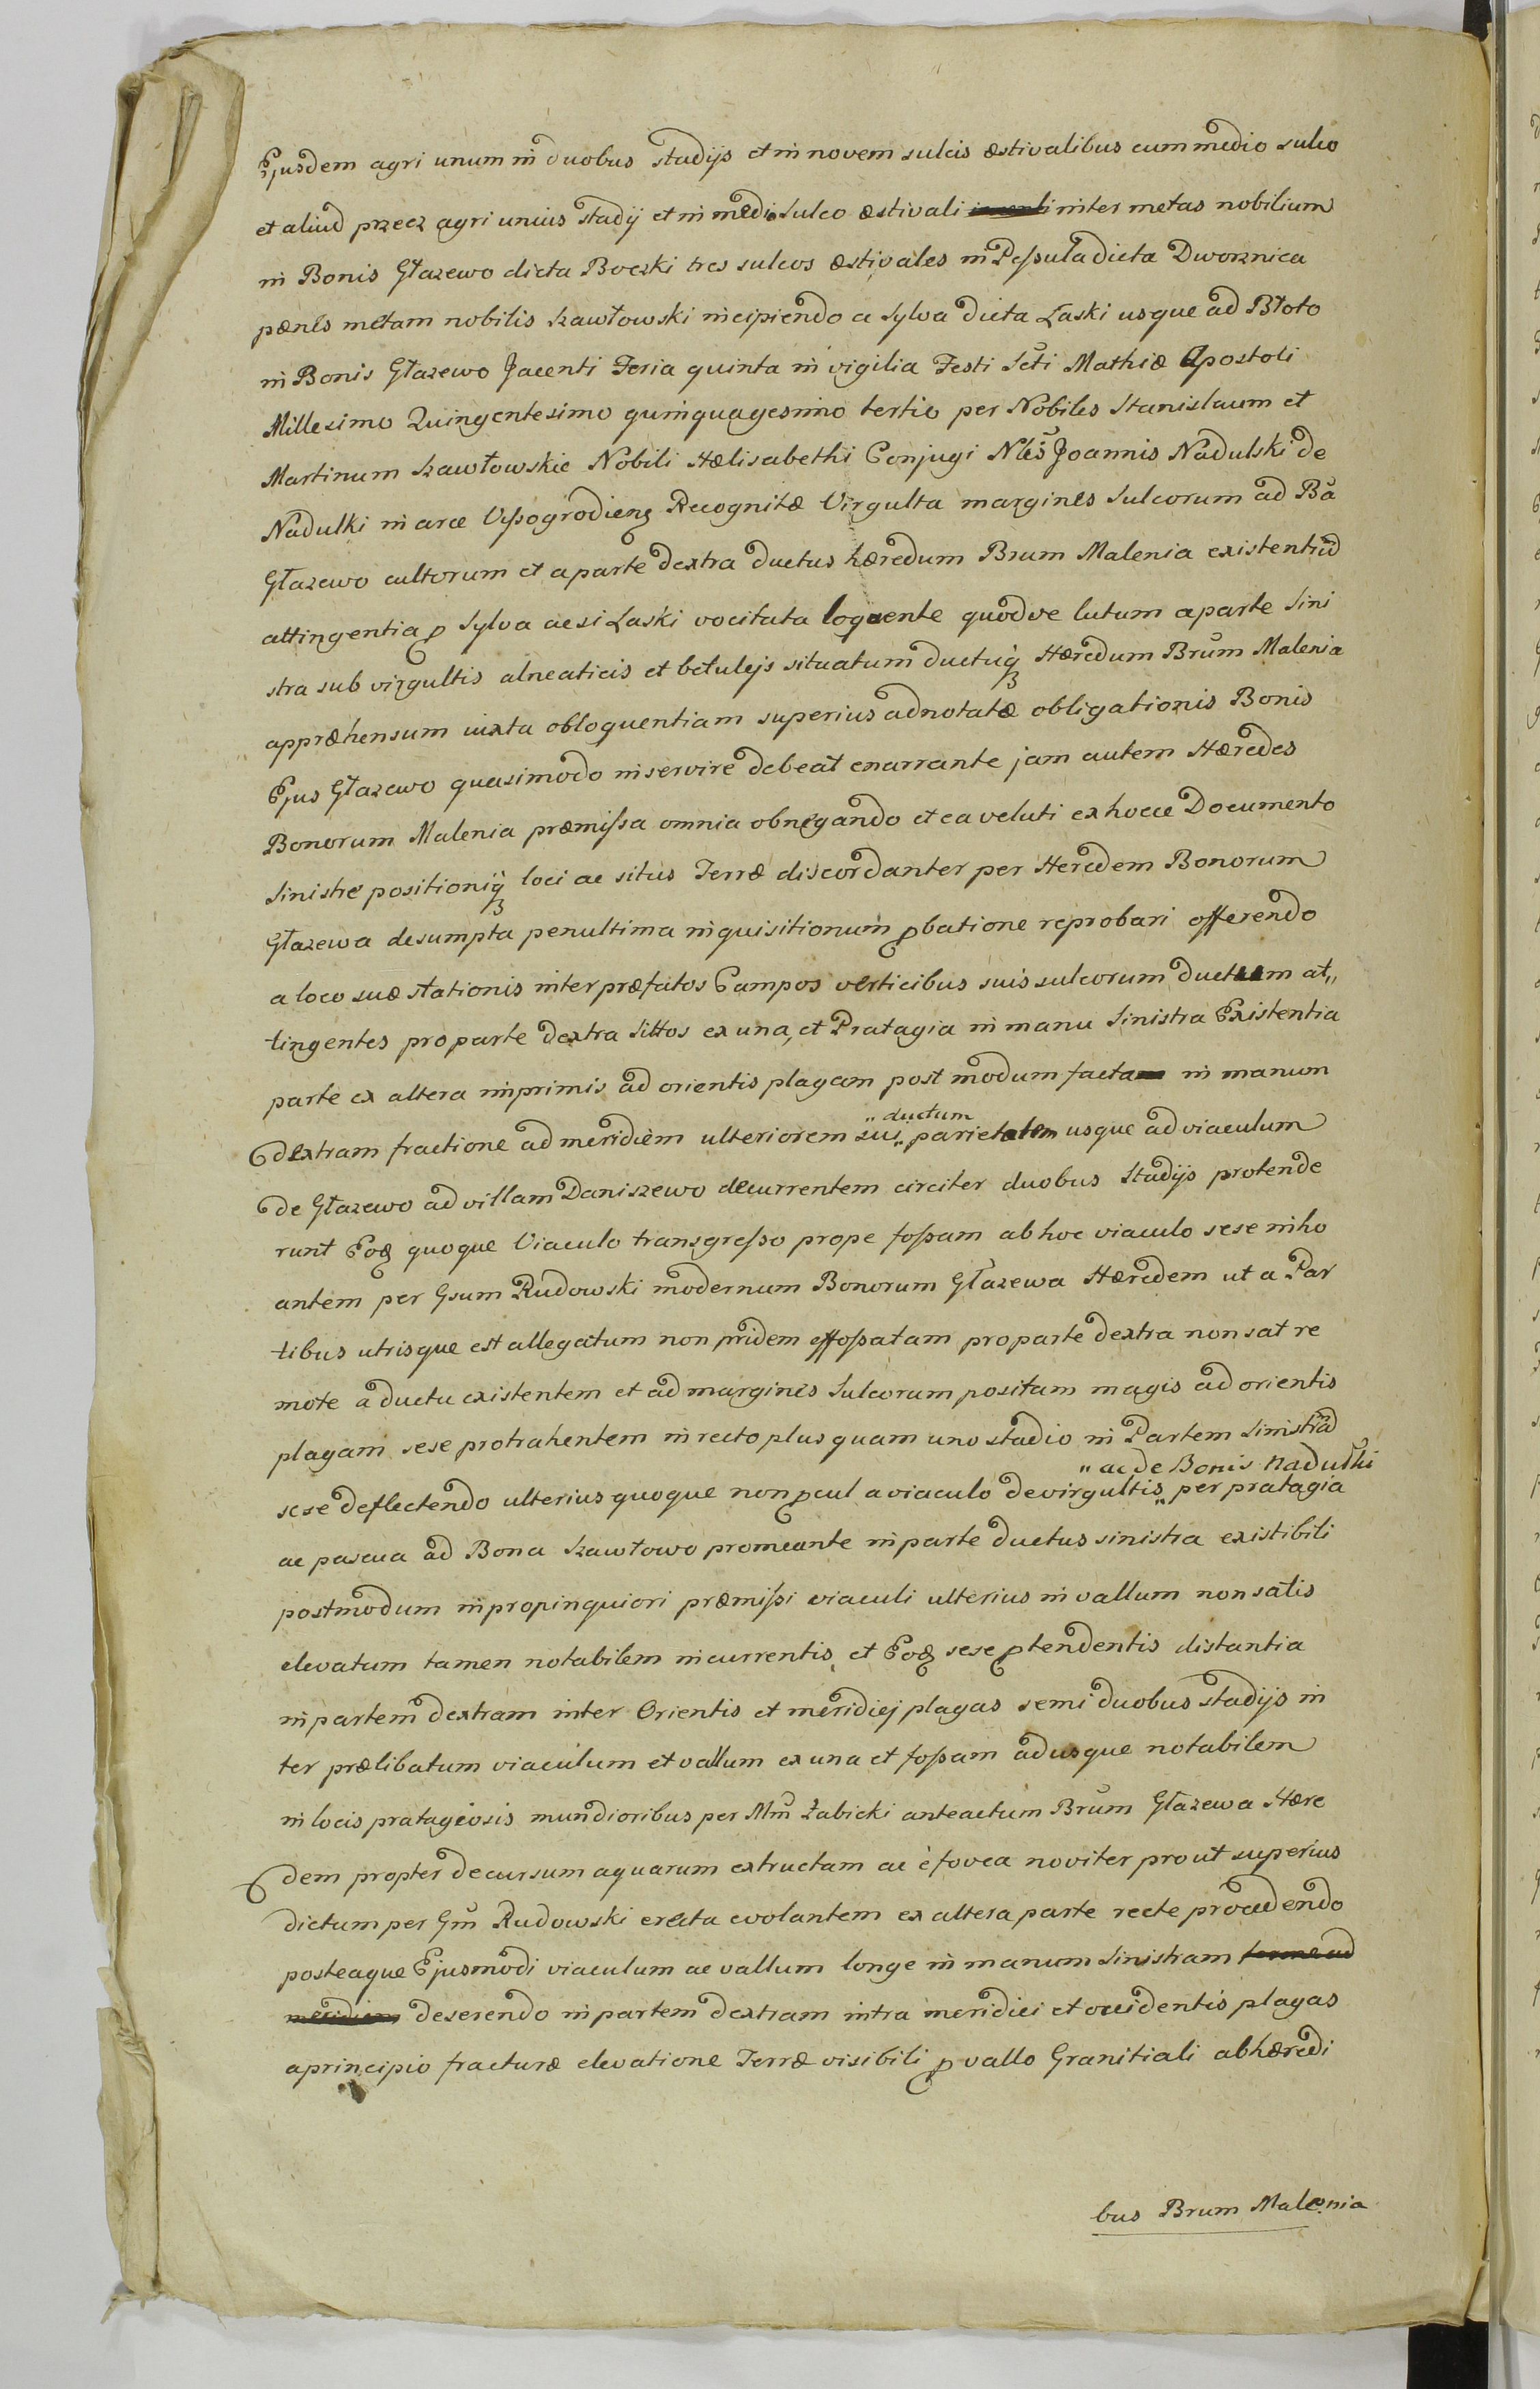 Ejusdem agri unum in duobus stadijs et in novem sulcis æstivalibus cum medio sulco
et aliud przecz agri unius stadij et in medio sulco æstivali inter metas nobilium
in Bonis Głazewo dicta Boczki tres sulcos æstivales in Peßula dicta Dwornica
pænes metam nobilis Szawłowski incipiendo a sylva dicta Laski usque ad Błoto
in Bonis Głazewo Jacenti Feria quinta in vigilia Festi Scti Mathiæ Apostoli
Millesimo Quingentesimo quinquagesimo tertio per Nobiles Stanislaum et
Martinum Szawłowskie Nobili Hælisabethi Conjugi Nlis Joannis Nadulski de
Nadulki in arce Vyßogrodien Recognitæ Virgulta margines sulcorum ad Bā
Głazewo cultorum et a parte dextra ductus hæredum Brum Malenia existentiū
attingentia p sylva acsi Laski vocitata loquente quodve lutum a parte sini
stra sub virgultis alneaticis et betulejs situatum ductuiq Hæredum Brum Malenia
appræhensum iuxta obloquentiam superius adnotatæ obligationis Bonis
Ejus Głazewo quasimodo inservire debeat enarrante jam autem Hæredes
Bonorum Malenia præmißa omnia obnegando et ea veluti ex hocce Documento
sinistre positioniq loci ac situs Terræ discordanter per Heredem Bonorum
Głazewa desumpta penultima inquisitionum pbatione reprobari offerendo
a loco suæ stationis inter præfatos Campos verticibus suis sulcorum ductum at„
tingentes pro parte dextra sittos ex una, et Pratagia in manu sinistra Existentia
parte ex altera inprimis ad orientis plagam post modum facta in manum
dextram fractione ad meridiem ulteriorem sui „ductum„ parietatem usque ad viaculum
de Głazewo ad villam Daniszewo decurrentem circiter duobus Stadijs protende
runt Eoq quoque Viaculo transgreßo prope foßam ab hoc viaculo sese inho
antem per Gsum Rudowski modernum Bonorum Głazewa Hæredem ut a Par
tibus utrisque est allegatum non pridem effoßatam pro parte dextra non sat re
mote a ductu existentem et ad margines sulcorum positam magis ad orientis
plagam sese protrahentem in recto plus quam uno stadio in Partem sinistrā
„ ac de Bonis Nadulki
sese deflectendo ulterius quoque non pcul a viaculo de virgultis„ per pratagia
ac pascua ad Bona Szawłowo promeante in parte ductus sinistra existibili
postmodum in propinquiori præmißi viaculi ulterius in vallum non satis
elevatum tamen notabilem incurrentis, et Eoq sese ptendentis distantia
in partem dextram inter Orientis et meridiej plagas semi duobus stadijs in
ter prælibatum viaculum et vallum ex una et foßam adusque notabilem
in locis pratageosis mundioribus per Mm Żabicki anteactum Brum Głazewa Hære
dem propter decursum aquarum extructam ac è fovea noviter prout superius
dictum per Gm Rudowski erecta evolantem ex altera parte recte procedendo
posteaque Ejusmodi viaculum ac vallum longe in manum sinistram
meridiem deserendo in partem dextram intra meridiei et occidentis plagas
a principio fracturæ elevatione Terræ visibili p vallo Granitiali ab hæredi
bus Brum Malenia